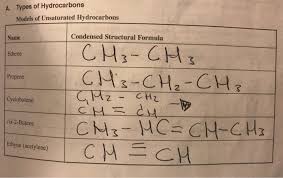 A. Types of Hydrocarbons
Models of Unsaturated Hydrocarbons
Name Condensed Structural Formula
Ethene CH3-CH3
Propene CH3-CH2-CH3
Cyclobutene CH2 - CH2
CH = CH
cis-2-Butene CH3-HC=CH-CH3
Ethyne (acetylene) CH≡CH